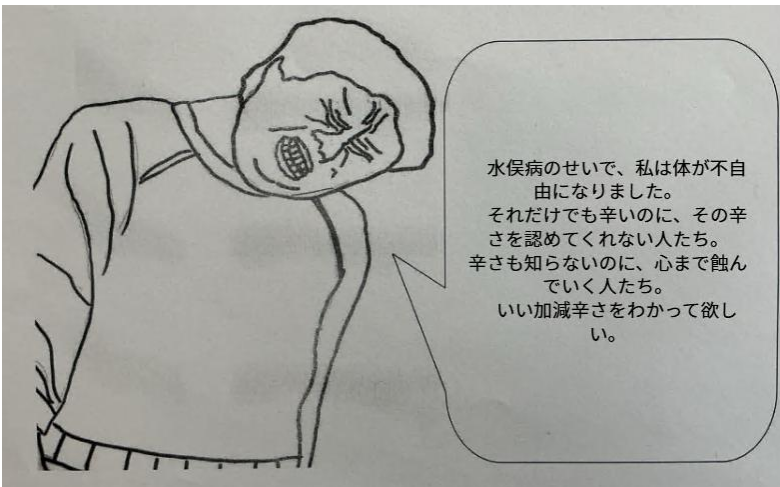 水俣病のせいで、私は体が不自
由になりました。
それだけでも辛いのに、その辛
さを認めてくれない人たち。
辛さも知らないのに、心まで蝕ん
でいく人たち。
いい加減辛さをわかって欲し
い。